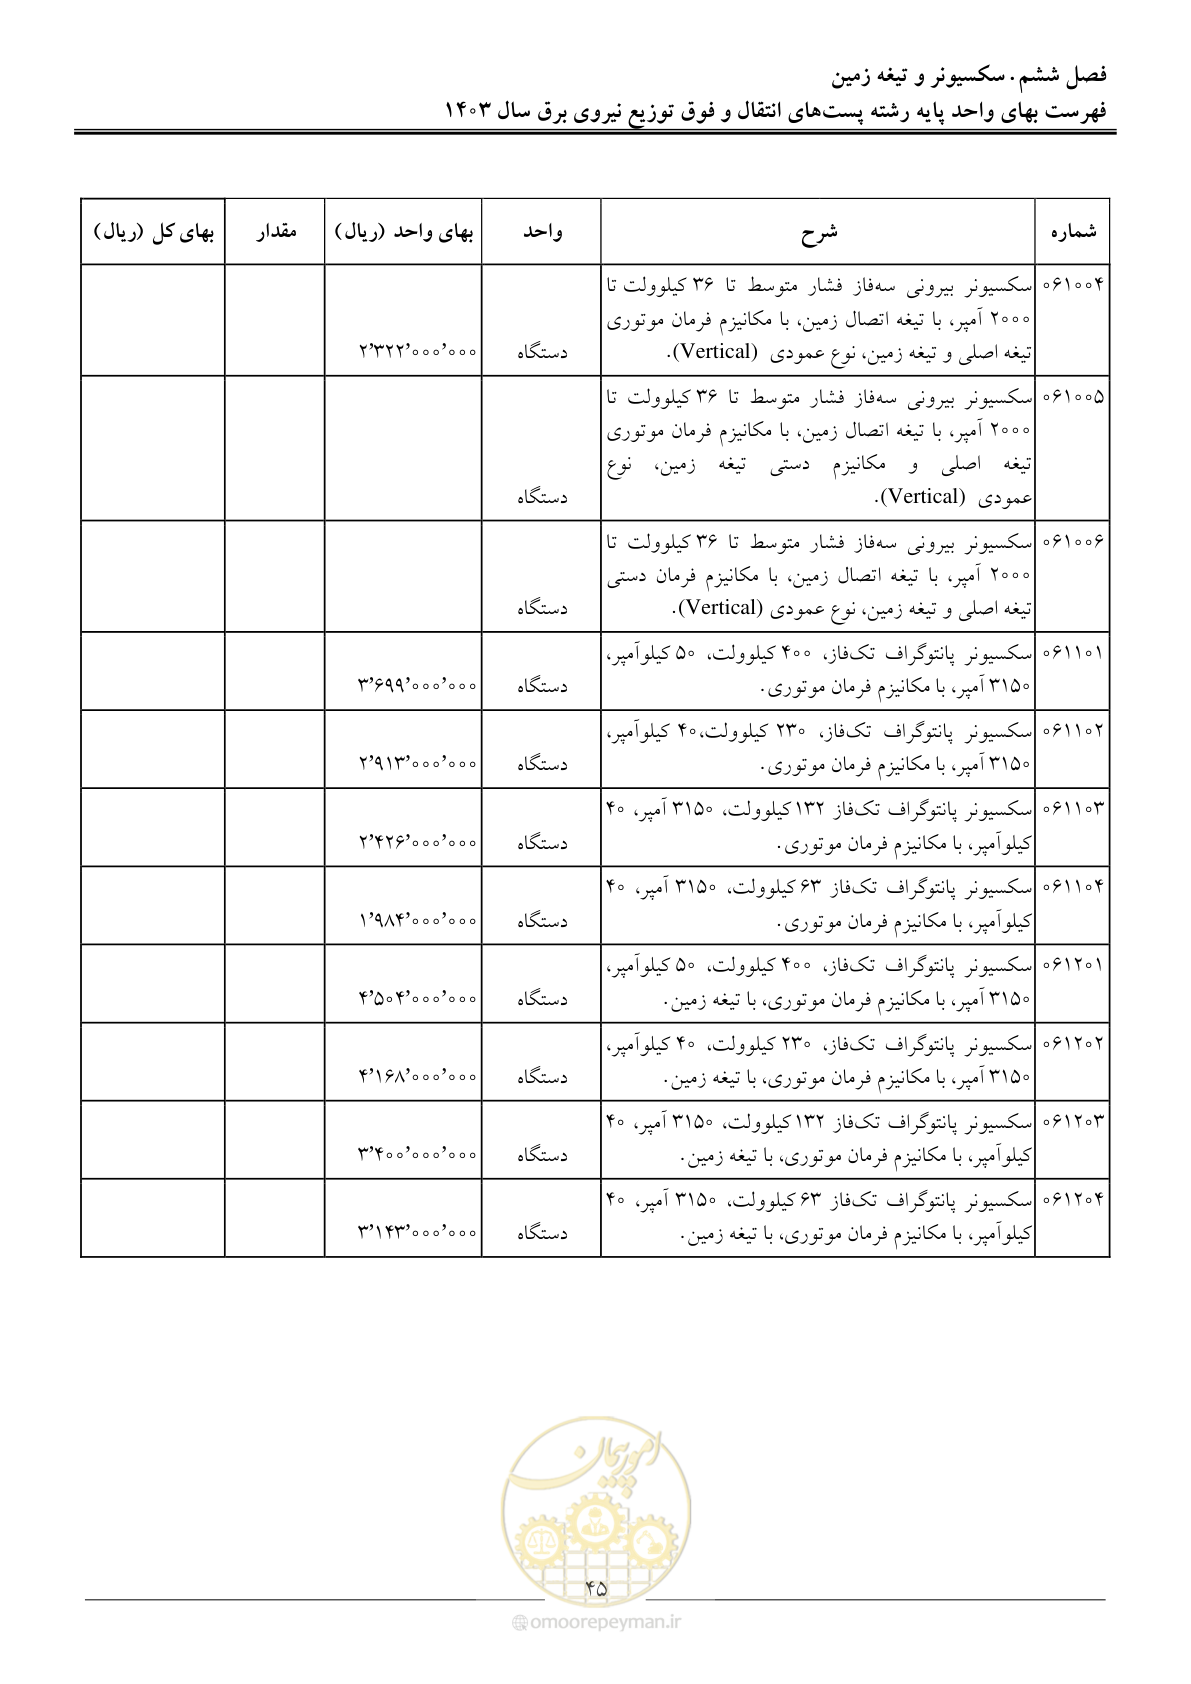 فصل ششم. سکسیونر و تیغه زمین
فهرست بهای واحد پایه رشته پست‌های انتقال و فوق توزیع نیروی برق سال ۱۴۰۳
شماره شرح واحد بهای واحد (ریال) مقدار بهای کل (ریال)
۰۶۱۰۰۴ سکسیونر بیرونی سه‌فاز فشار متوسط تا ۳۶ کیلوولت تا
۲۰۰۰ آمپر، با تیغه اتصال زمین، با مکانیزم فرمان موتوری
تیغه اصلی و تیغه زمین، نوع عمودی (Vertical). دستگاه ۲٬۳۲۲٬۰۰۰٬۰۰۰
۰۶۱۰۰۵ سکسیونر بیرونی سه‌فاز فشار متوسط تا ۳۶ کیلوولت تا
۲۰۰۰ آمپر، با تیغه اتصال زمین، با مکانیزم فرمان موتوری
تیغه اصلی و مکانیزم دستی تیغه زمین، نوع
عمودی (Vertical). دستگاه
۰۶۱۰۰۶ سکسیونر بیرونی سه‌فاز فشار متوسط تا ۳۶ کیلوولت تا
۲۰۰۰ آمپر، با تیغه اتصال زمین، با مکانیزم فرمان دستی
تیغه اصلی و تیغه زمین، نوع عمودی (Vertical). دستگاه
۰۶۱۱۰۱ سکسیونر پانتوگراف تک‌فاز، ۴۰۰ کیلوولت، ۵۰ کیلوآمپر،
۳۱۵۰ آمپر، با مکانیزم فرمان موتوری. دستگاه ۳٬۶۹۹٬۰۰۰٬۰۰۰
۰۶۱۱۰۲ سکسیونر پانتوگراف تک‌فاز، ۲۳۰ کیلوولت،۴۰ کیلوآمپر،
۳۱۵۰ آمپر، با مکانیزم فرمان موتوری. دستگاه ۲٬۹۱۳٬۰۰۰٬۰۰۰
۰۶۱۱۰۳ سکسیونر پانتوگراف تک‌فاز ۱۳۲ کیلوولت، ۳۱۵۰ آمپر، ۴۰
کیلوآمپر، با مکانیزم فرمان موتوری. دستگاه ۲٬۴۲۶٬۰۰۰٬۰۰۰
۰۶۱۱۰۴ سکسیونر پانتوگراف تک‌فاز ۶۳ کیلوولت، ۳۱۵۰ آمپر، ۴۰
کیلوآمپر، با مکانیزم فرمان موتوری. دستگاه ۱٬۹۸۴٬۰۰۰٬۰۰۰
۰۶۱۲۰۱ سکسیونر پانتوگراف تک‌فاز، ۴۰۰ کیلوولت، ۵۰ کیلوآمپر،
۳۱۵۰ آمپر، با مکانیزم فرمان موتوری، با تیغه زمین. دستگاه ۴٬۵۰۴٬۰۰۰٬۰۰۰
۰۶۱۲۰۲ سکسیونر پانتوگراف تک‌فاز، ۲۳۰ کیلوولت، ۴۰ کیلوآمپر،
۳۱۵۰ آمپر، با مکانیزم فرمان موتوری، با تیغه زمین. دستگاه ۴٬۱۶۸٬۰۰۰٬۰۰۰
۰۶۱۲۰۳ سکسیونر پانتوگراف تک‌فاز ۱۳۲ کیلوولت، ۳۱۵۰ آمپر، ۴۰
کیلوآمپر، با مکانیزم فرمان موتوری، با تیغه زمین. دستگاه ۳٬۴۰۰٬۰۰۰٬۰۰۰
۰۶۱۲۰۴ سکسیونر پانتوگراف تک‌فاز ۶۳ کیلوولت، ۳۱۵۰ آمپر، ۴۰
کیلوآمپر، با مکانیزم فرمان موتوری، با تیغه زمین. دستگاه ۳٬۱۴۳٬۰۰۰٬۰۰۰
امور پیمان
۴۵
omoorepeyman.ir